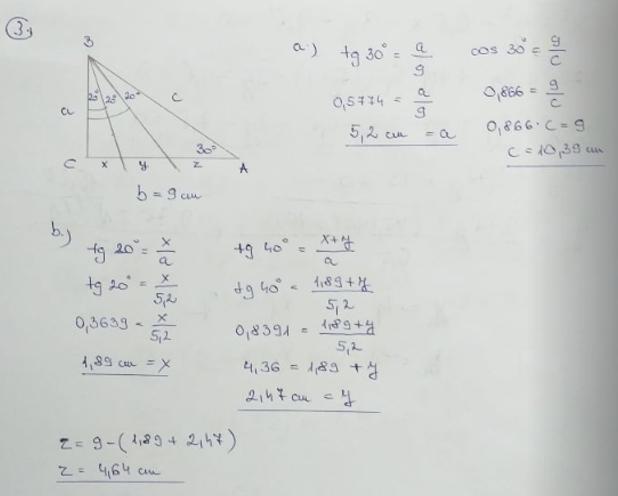 3.)
B
20° 20° 20°
a
c
30°
C x y z A
b = 9 cm
a.)
tg 30° = a/9
0,5774 = a/9
5,2 cm = a
cos 30° = 9/c
0,866 = 9/c
0,866 · c = 9
c = 10,39 cm
b.)
tg 20° = x/a
tg 20° = x/5,2
0,3639 = x/5,2
1,89 cm = x
tg 40° = x+y/a
tg 40° = 1,89+y/5,2
0,8391 = 1,89+y/5,2
4,36 = 1,89 + y
2,47 cm = y
z = 9-(1,89 + 2,47)
z = 4,64 cm